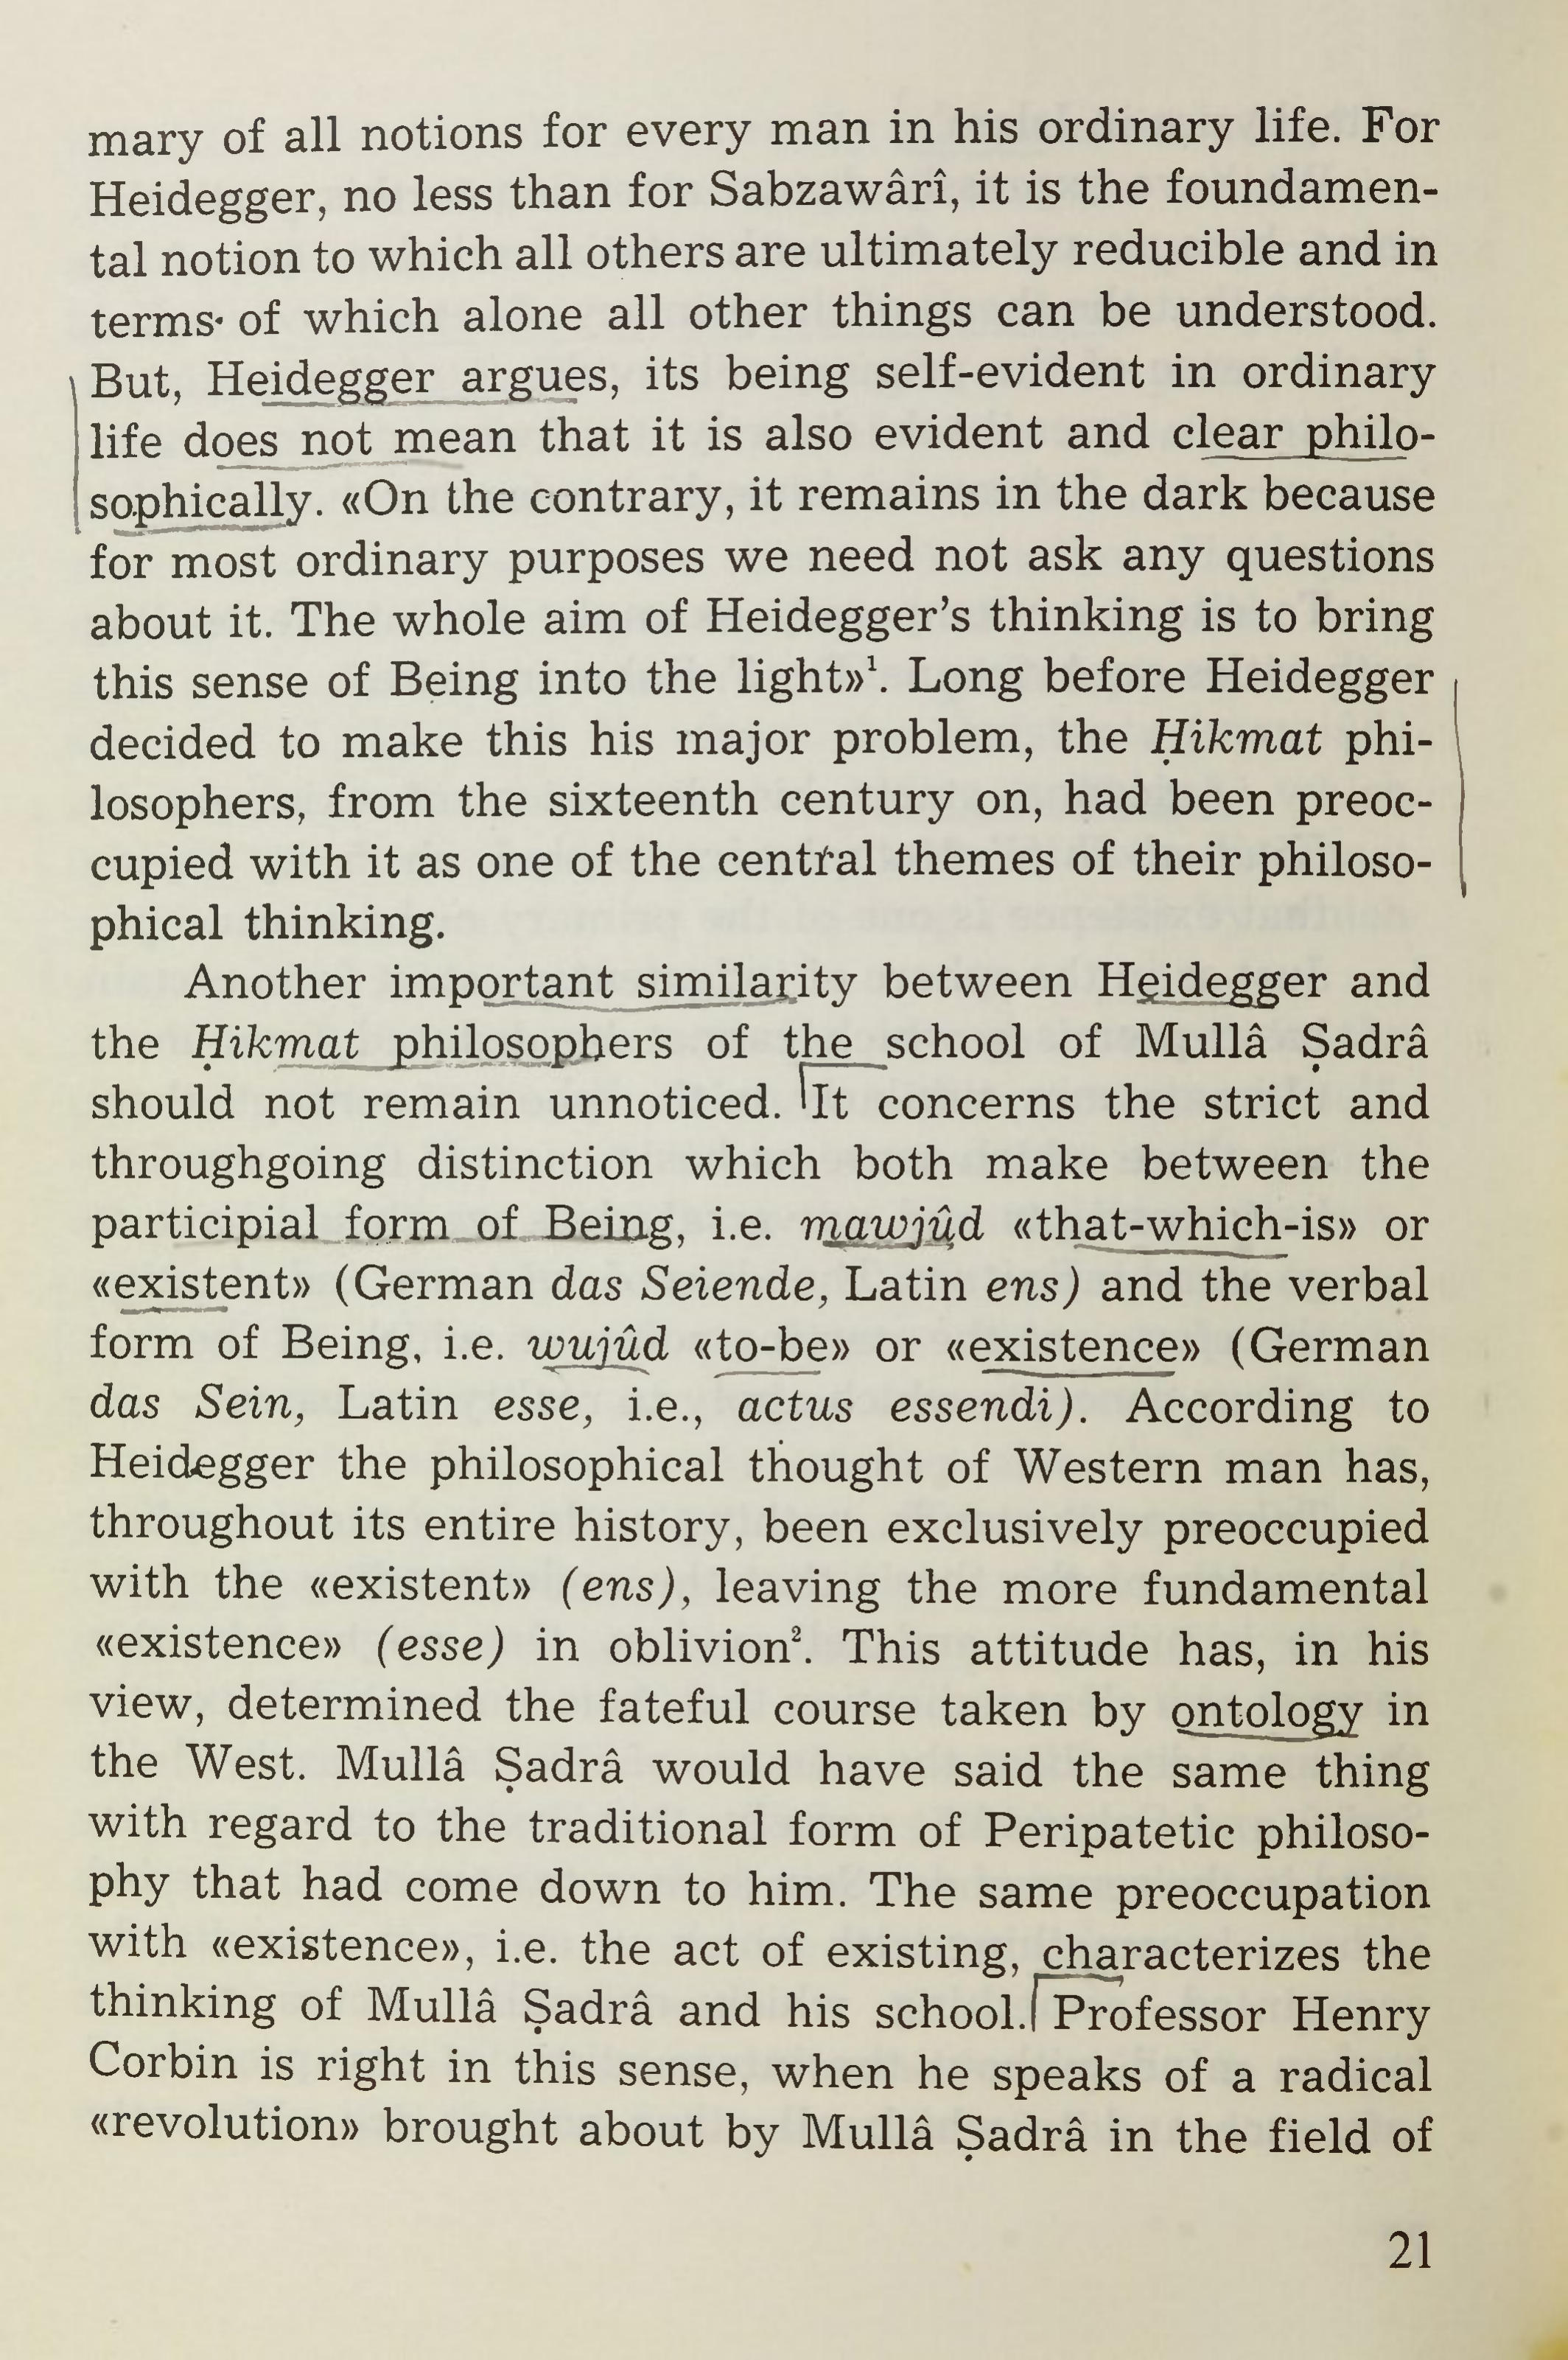 mary of all notions for every man in his ordinary life. For
Heidegger, no less than for Sabzawârî, it is the foundamen-
tal notion to which all others are ultimately reducible and in
terms of which alone all other things can be understood.
But, Heidegger argues, its being self-evident in ordinary
life does not mean that it is also evident and clear philo-
sophically. «On the contrary, it remains in the dark because
for most ordinary purposes we need not ask any questions
about it. The whole aim of Heidegger's thinking is to bring
this sense of Being into the light»¹. Long before Heidegger
decided to make this his major problem, the Ḥikmat phi-
losophers, from the sixteenth century on, had been preoc-
cupied with it as one of the central themes of their philoso-
phical thinking.
Another important similarity between Heidegger and
the Ḥikmat philosophers of the school of Mullâ Ṣadrâ
should not remain unnoticed. It concerns the strict and
throughgoing distinction which both make between the
participial form of Being, i.e. mawjûd «that-which-is» or
«existent» (German das Seiende, Latin ens) and the verbal
form of Being, i.e. wujûd «to-be» or «existence» (German
das Sein, Latin esse, i.e., actus essendi). According to
Heidegger the philosophical thought of Western man has,
throughout its entire history, been exclusively preoccupied
with the «existent» (ens), leaving the more fundamental
«existence» (esse) in oblivion². This attitude has, in his
view, determined the fateful course taken by ontology in
the West. Mullâ Ṣadrâ would have said the same thing
with regard to the traditional form of Peripatetic philoso-
phy that had come down to him. The same preoccupation
with «existence», i.e. the act of existing, characterizes the
thinking of Mullâ Ṣadrâ and his school. Professor Henry
Corbin is right in this sense, when he speaks of a radical
«revolution» brought about by Mullâ Ṣadrâ in the field of
21